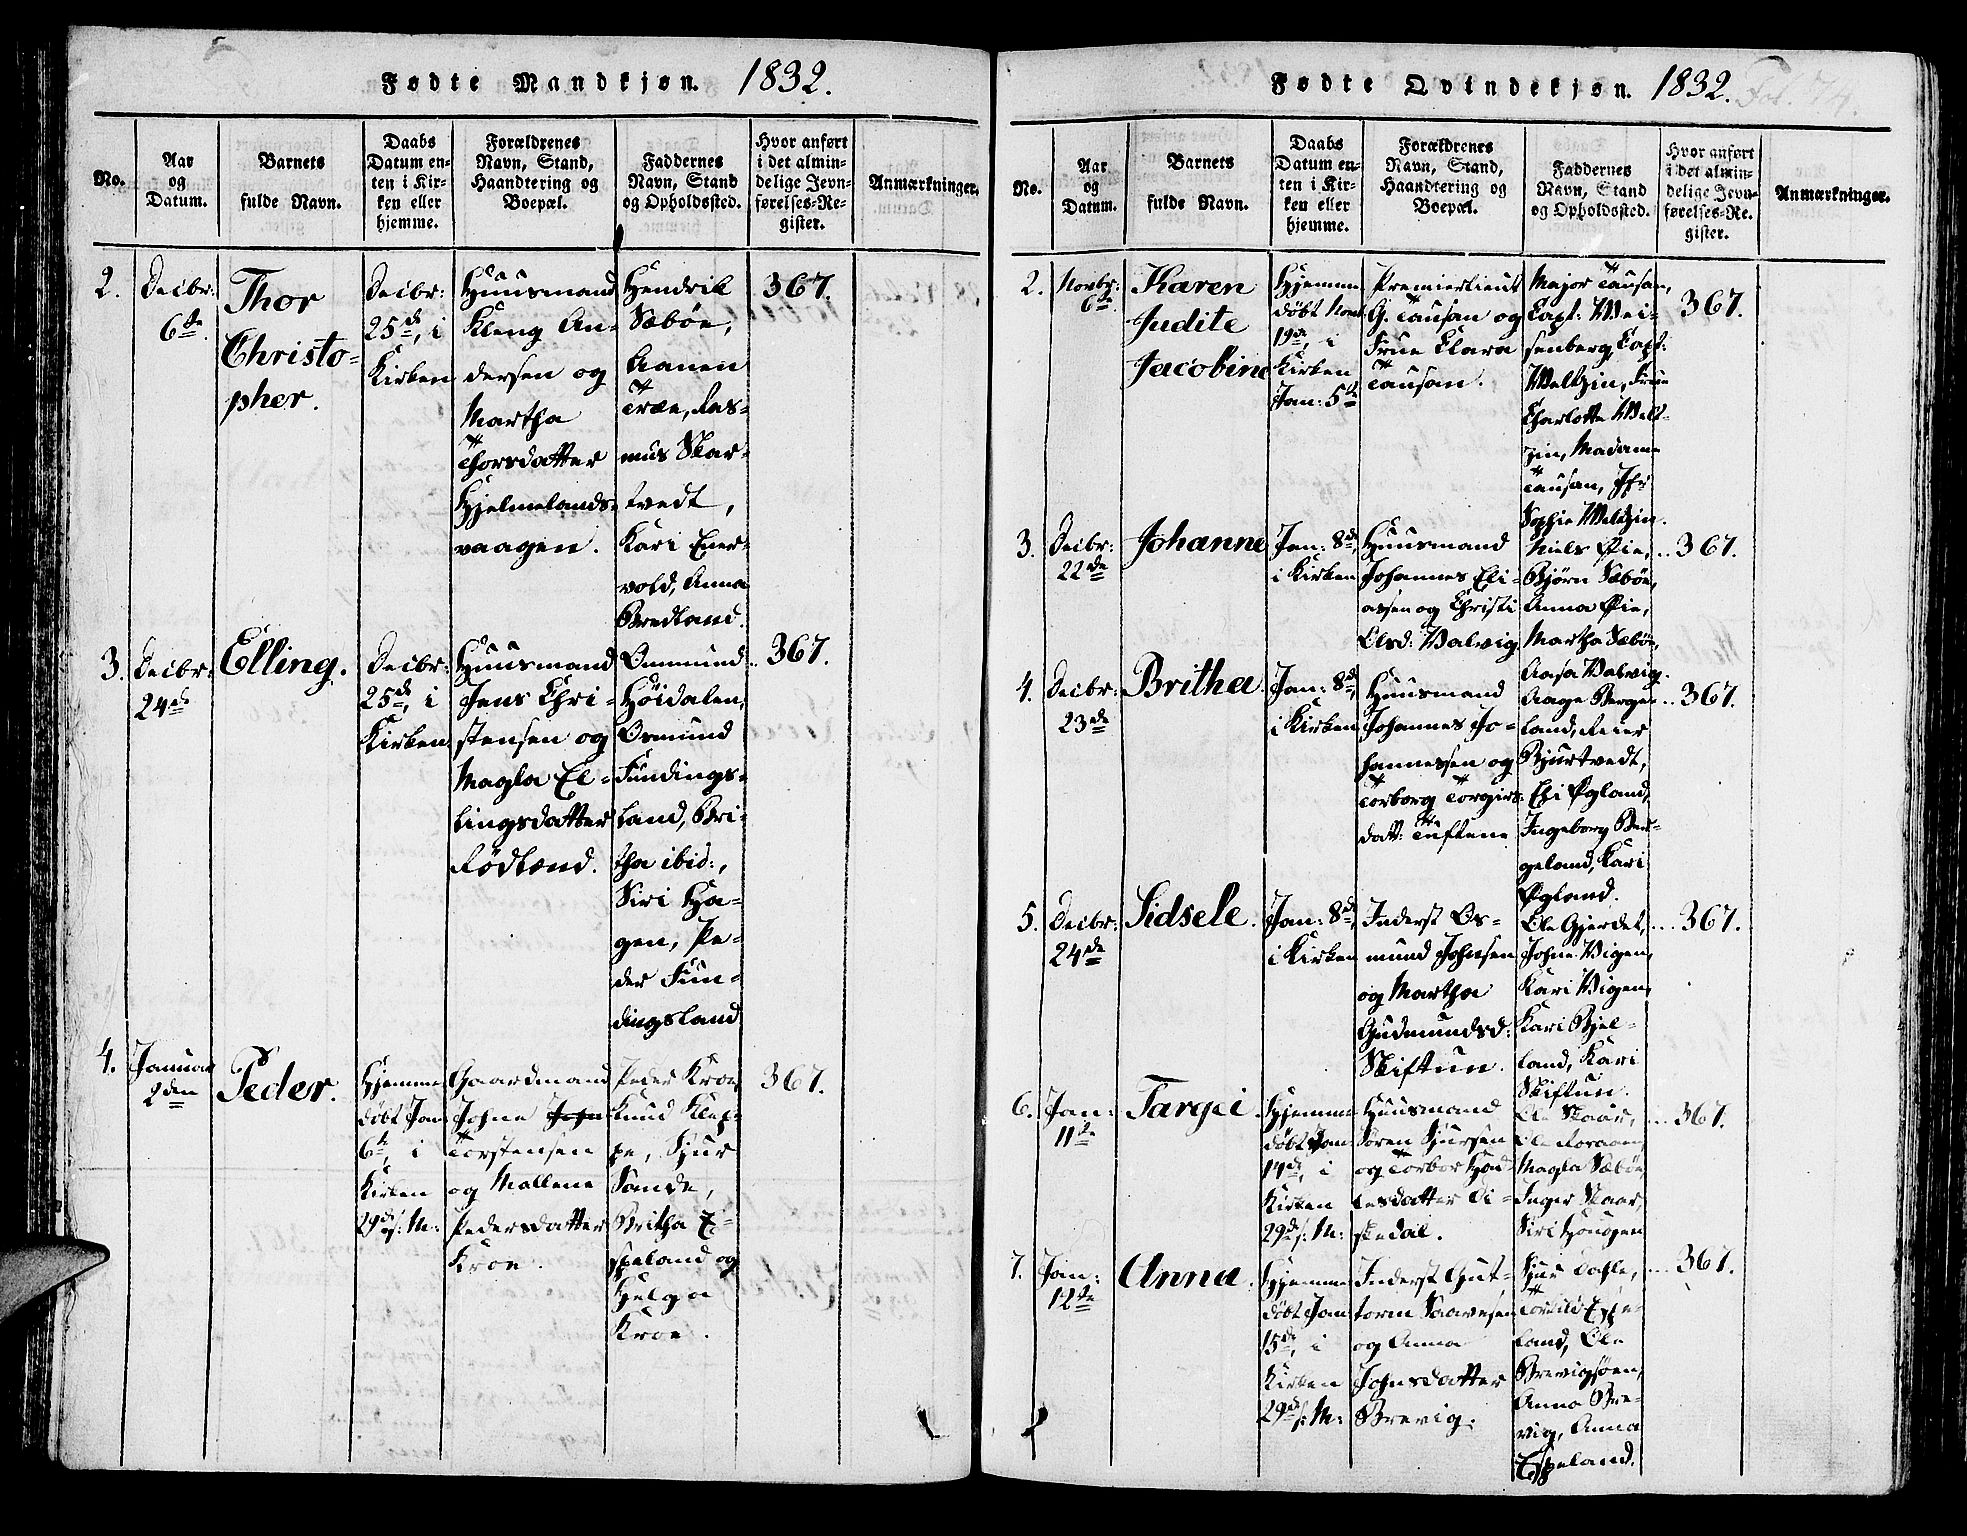 Fødte Mandkjøn. 1832.
No.
Aar
og
Datum.
Barnets
fulde Navn.
Daabs
Datum en-
ten i Kir-
ken eller
hjemme.
Forældrenes
Navn, Stand,
Haandtering og
Boepæl.
Faddernes
Navn, Stand
og Opholdssted.
Hvor anført
i det almin-
delige Jevn-
førelses-Re-
gister.
Anmærkninger.
2.
Decbr:
6te
Thor
Christo-
pher.
Decbr:
25de, i
Kirken
Huusmand
Kleng An-
dersen og
Martha
Thorsdatter
Hjelmelands-
vaagen.
Hendrik
Sæbøe,
Aanen
Træe, Ras-
mus Skar-
tvedt,
Kari Ener-
vold, Anna
Bredland.
367.
3.
Decbr:
24de
Elling.
Decbr:
25de, i
Kirken
Huusmand
Jens Chri-
stensen og
Magla El-
lingsdatter
Rødland.
Onmund
Høidalen,
Osmund
Fundings-
land, Bri-
tha ibid:,
Siri Ha-
gen, Pe-
der Fun-
dingsland
367.
4.
Januar
2den
Peder.
Hjemme
døbt Jan
6te, i
Kirken
29de s: M:
Gaardmand
Johne John
Torstensen
og Mallene
Pedersdatter
Kroe.
Peder Kroe
Knud Klep-
pe, Sjur
Sande,
Britha E-
speland og
Helga
Kroe.
367.
Fødte Qvindekjøn. 1832.
Fol. 74.
No.
Aar
og
Datum.
Barnets
fulde Navn.
Daabs
Datum en-
ten i Kir-
ken eller
hjemme.
Forældrenes
Navn, Stand,
Haandtering og
Boepæl.
Faddernes
Navn, Stand
og Opholdssted.
Hvor anført
i det almin-
delige Jevn-
førelses-Re-
gister.
Anmærkninger.
2.
Novbr:
6te
Karen
Judite
Jacobine
Hjemme
døbt Nov:
19de, i
Kirken
Jan: 5te
Premierlieut
G. Tausan og
Frue Clara
Tausan.
Major Tausan,
Capt: Wei-
senberg, Capt:
Weltzin, Frue
Charlotte Welt-
zin, Madame
Tausan, Jfr
Sophie Weltzin.
367.
3.
Decbr:
22de
Johanne
Jan: 8de,
i Kirken
Huusmand
Johannes Eli-
assen og Christi
Olsd: Walvig
Niels Øie,
Bjørn Sæbøe,
Anna Øie,
Martha Sæbøe,
Aasa Walvig.
367.
4.
Decbr:
23de
Britha
Jan: 8de,
i Kirken
Huusmand
Johannes Jo-
hannessen og
Torborg Torgirs-
datt: Tuftene
Aage Berge-
land, Reier
Bjurtvedt,
Eli Øgland,
Ingeborg Ber-
geland, Kari
Øgland.
367.
5.
Decbr:
24de
Sidsele.
Jan: 8de,
i Kirken
Inderst Os-
mund Johnsen
og Martha
Gudmundsd:
Skiftun.
Ole Gjerdet,
Johne Vigen,
Kari Vigen,
Kari Bjel-
land, Kari
Skiftun.
367.
6.
Jan:
11te
Targei.
Hjemme
døbt Jan
14de, i
Kirken
29de s: M:
Huusmand
Søren Sjursen
og Torbor
Ole Skaar,
Magla Sæbøe,
Inger Skaar,
Siri
367.
7.
Jan:
12te
Anna.
Hjemme
døbt Jan:
15de, i
Kirken
29de s: M:
Inderst Gut-
torm Saavesen
og Anna
Johnsdatter
Brevig.
Sjur Dahle,
Torkild Espe-
land, Ole
Brevigsøen,
Anna Bre-
vig, Anna
Espeland.
367.